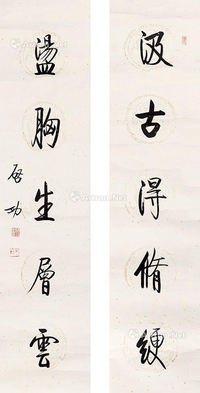 汲古得脩綆
盪胸生層雲
启功